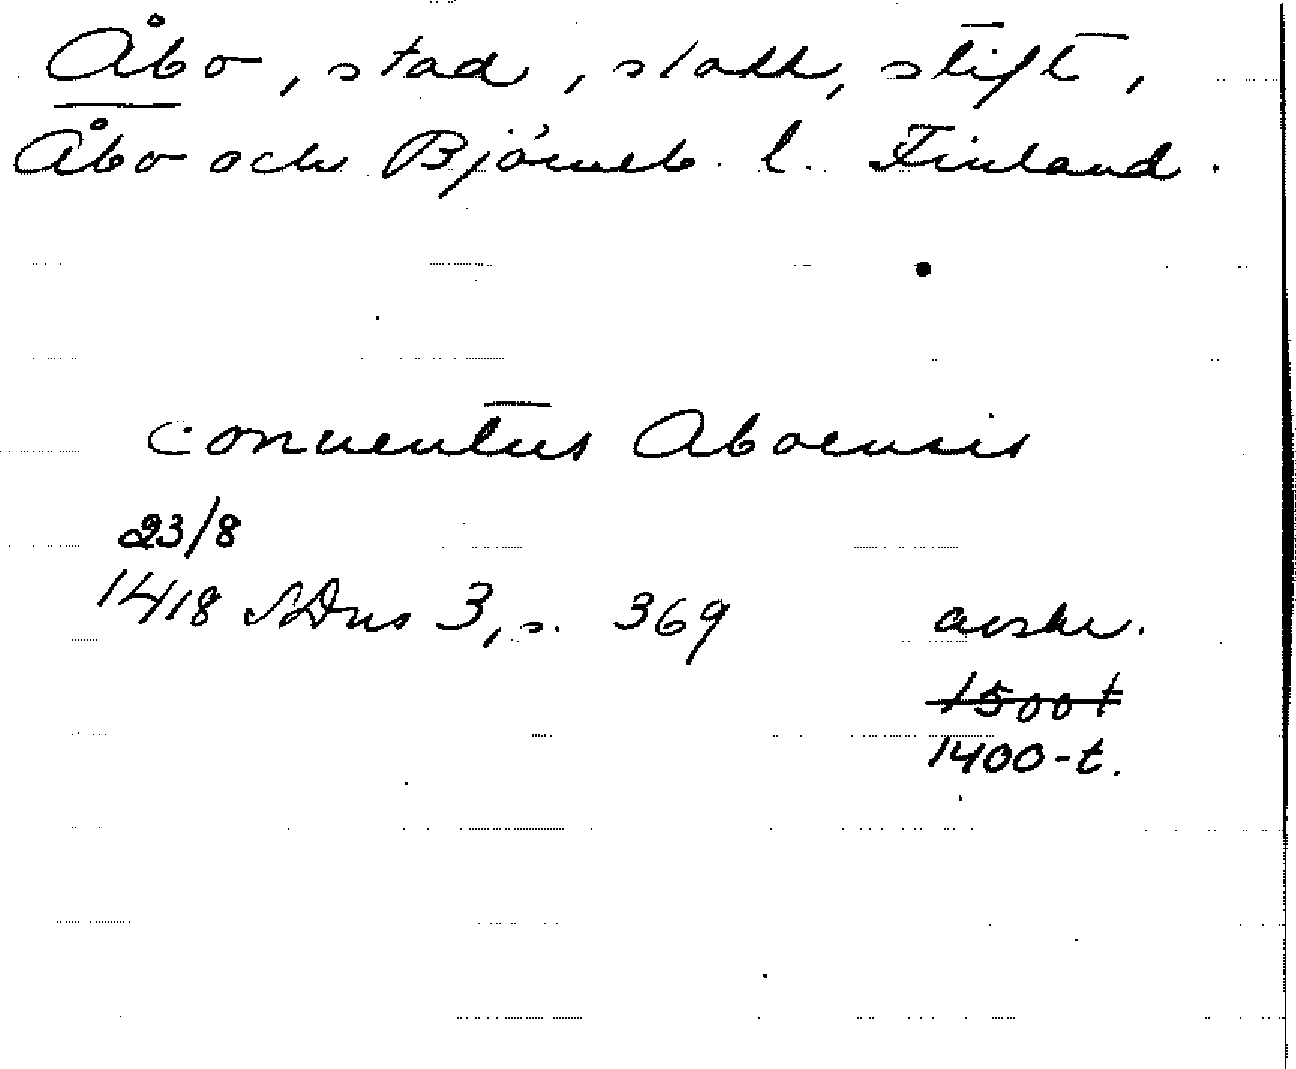 Åbo, stad, slott, stift,
Åbo och Björneb. l. Finland.
conuentus Aboensis
23/8
1418 SDns 3, s. 369 avskr.
1500 t
1400-t.